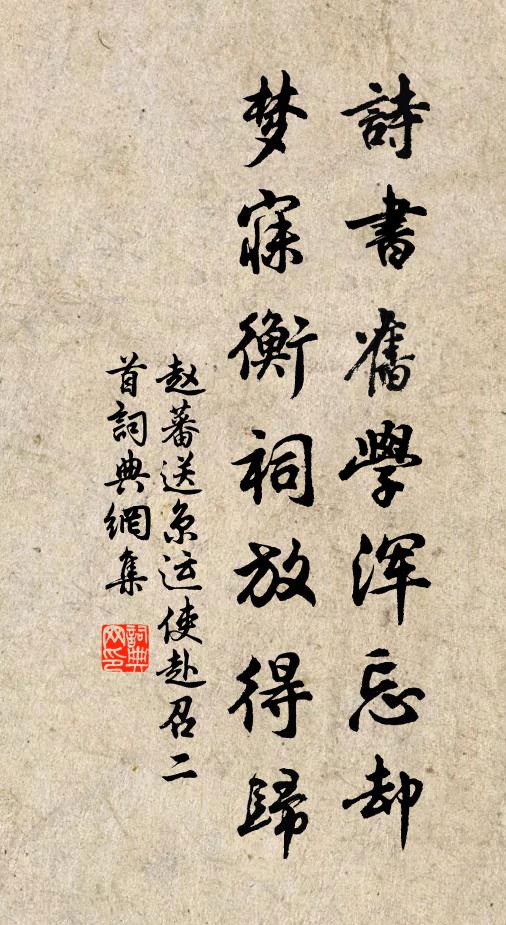 詩書舊學渾忘却
梦寐衡祠放得歸
赵蕃送京运使赴召二
首詞典網集
詞典
网印